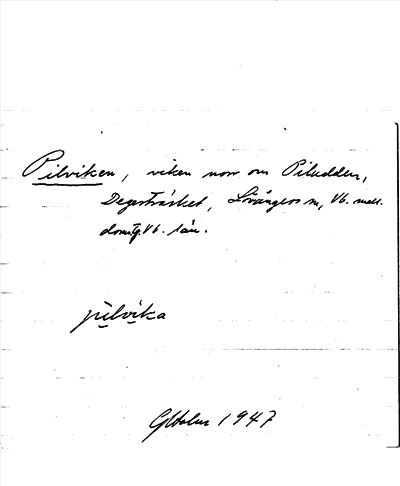 Pilviken, viken norr om Piludden,
Degerträsket, Lövångers sn, Vb. mell.
doms. Vb. län.
pìlvíka
GHolm 1947